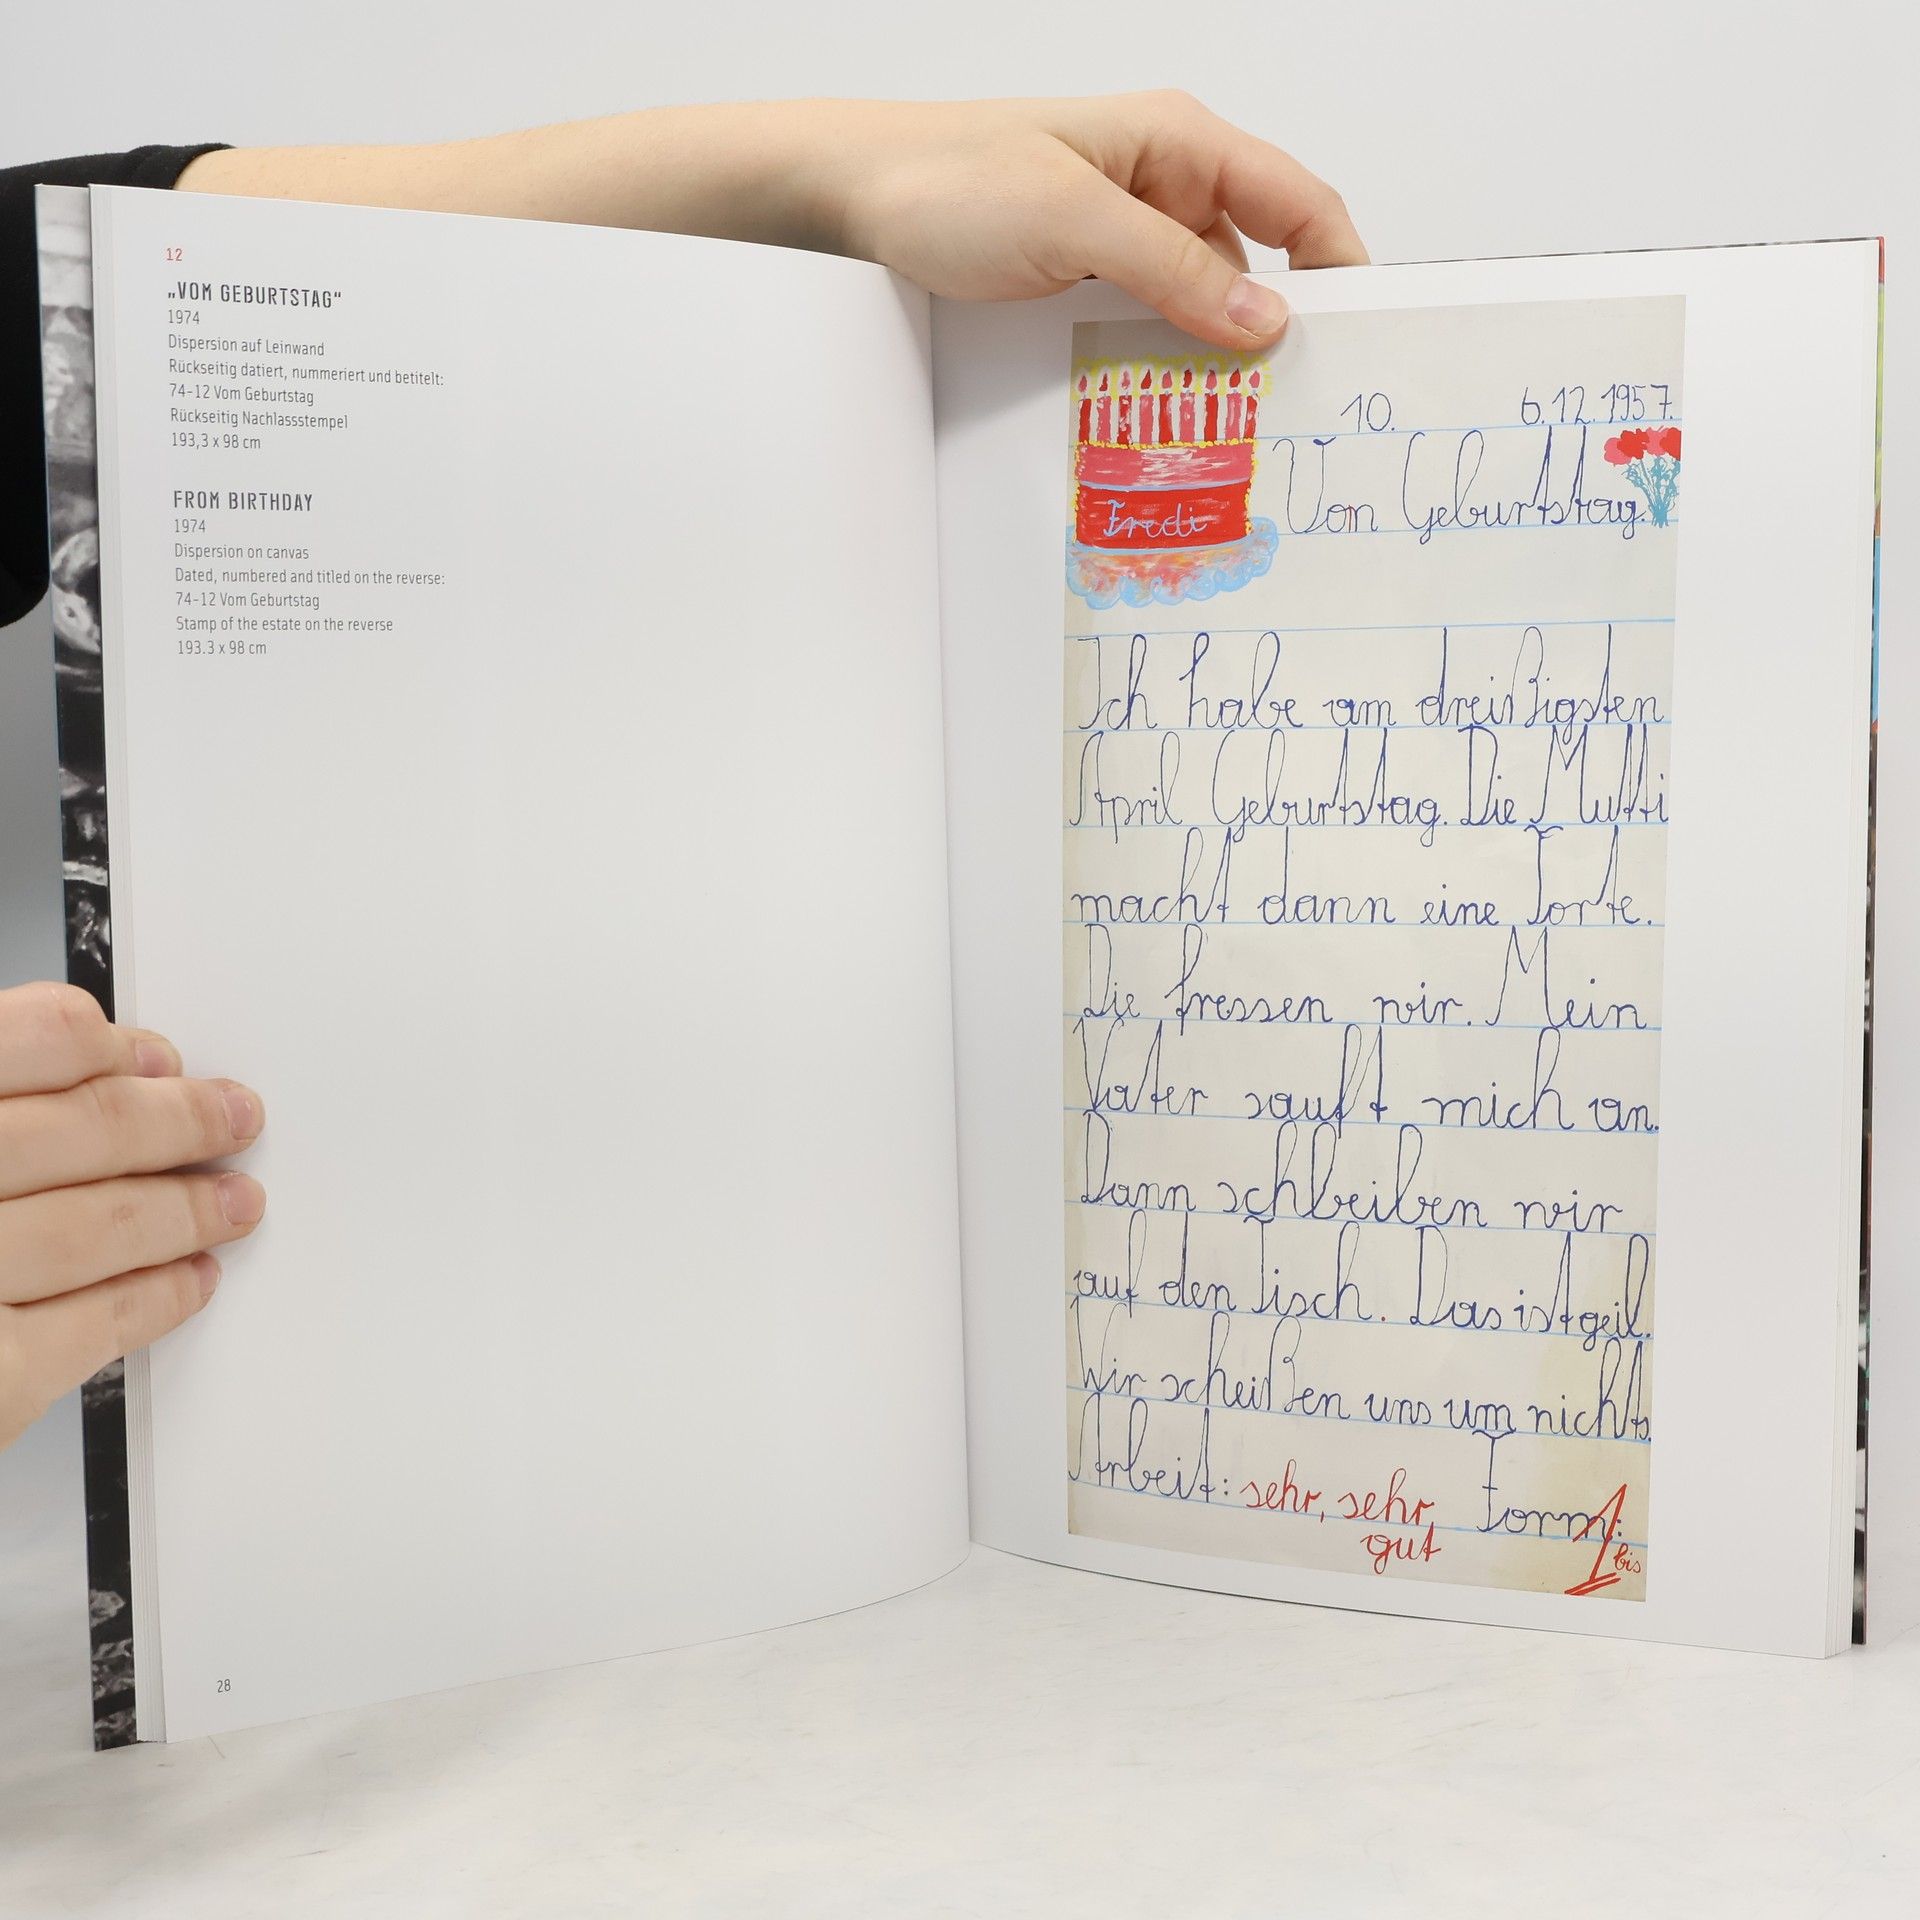 12
„VOM GEBURTSTAG“
1974
Dispersion auf Leinwand
Rückseitig datiert, nummeriert und betitelt:
74-12 Vom Geburtstag
Rückseitig Nachlassstempel
193,3 x 98 cm
FROM BIRTHDAY
1974
Dispersion on canvas
Dated, numbered and titled on the reverse:
74-12 Vom Geburtstag
Stamp of the estate on the reverse
193.3 x 98 cm
28
10. 6.12.1957.
Fredi
Vom Geburtstag.
Ich habe am dreißigsten
April Geburtstag. Die Mutti
macht dann eine Torte.
Die fressen wir. Mein
Vater sauft mich an.
Dann schbeiben wir
auf den Tisch. Das ist geil.
Wir scheißen uns um nichts.
Arbeit: sehr, sehr, Form: 1
gut bis